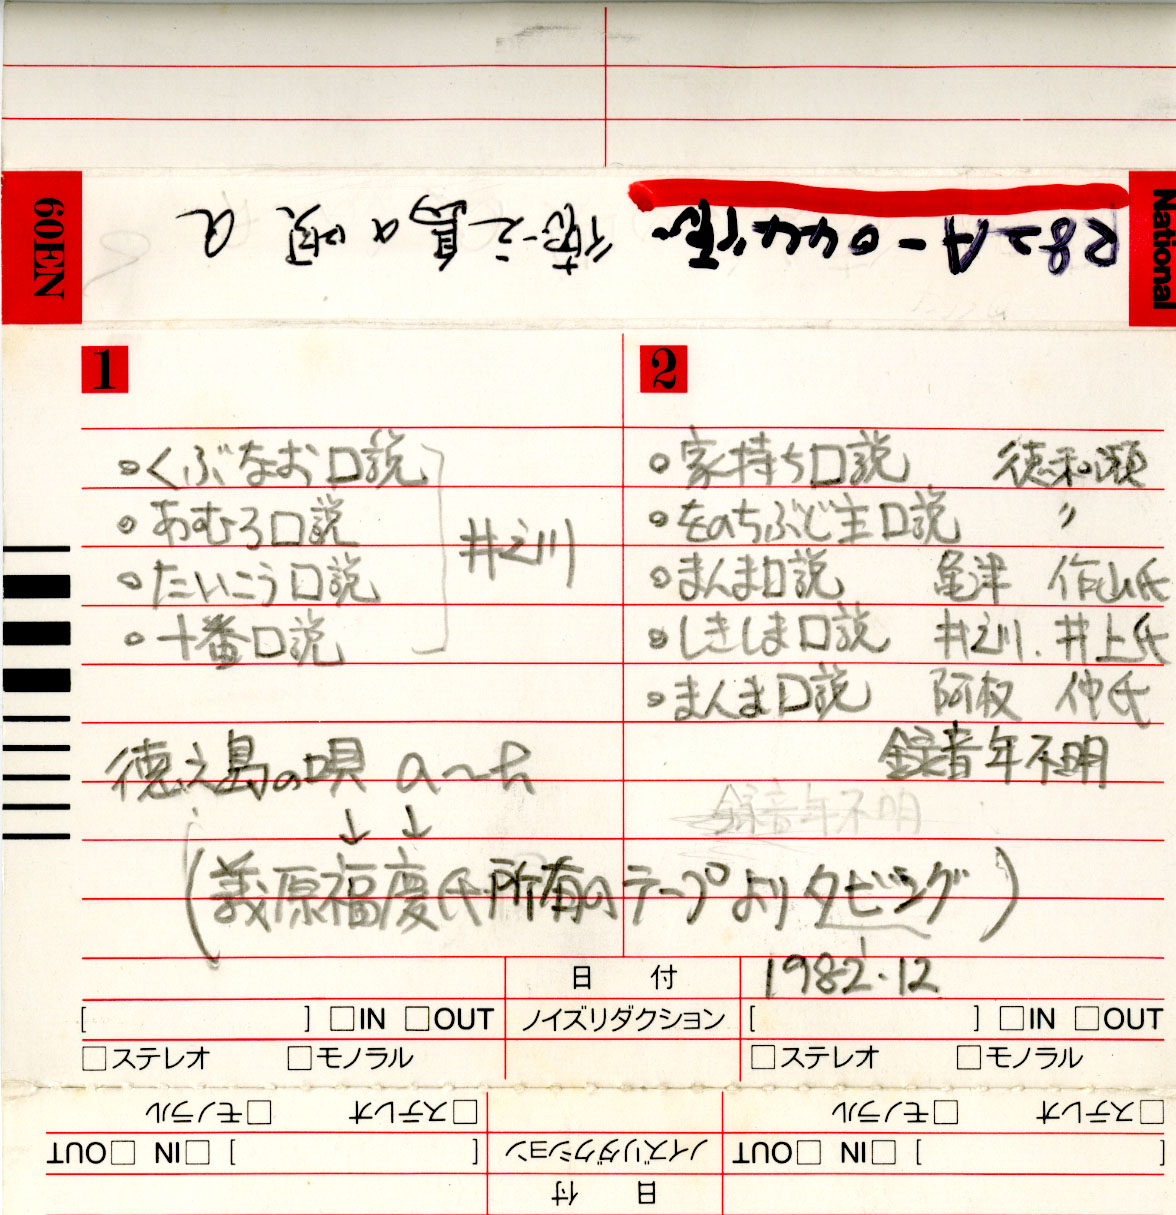 National
60EN
徳之島の唄 a
1
○くぶなお口説
○あむろ口説
○たいこう口説
○十番口説
井之川
徳之島の唄 a〜h
↓ ↓
2
○家持ち口説 徳和瀬
○をのちぶど主口説 〃
○まんま口説 亀津 作山氏
○しきしま口説 井之川. 井上氏
○まんま口説 阿权 仲氏
録音年不明
録音年不明
(義原福度氏所有のテープよりダビング)
日 付 1982.12
[ ] □IN □OUT ノイズリダクション [ ] □IN □OUT
□ステレオ □モノラル □ステレオ □モノラル
□ステレオ □モノラル □ステレオ □モノラル
[ ] □IN □OUT ノイズリダクション [ ] □IN □OUT
日 付